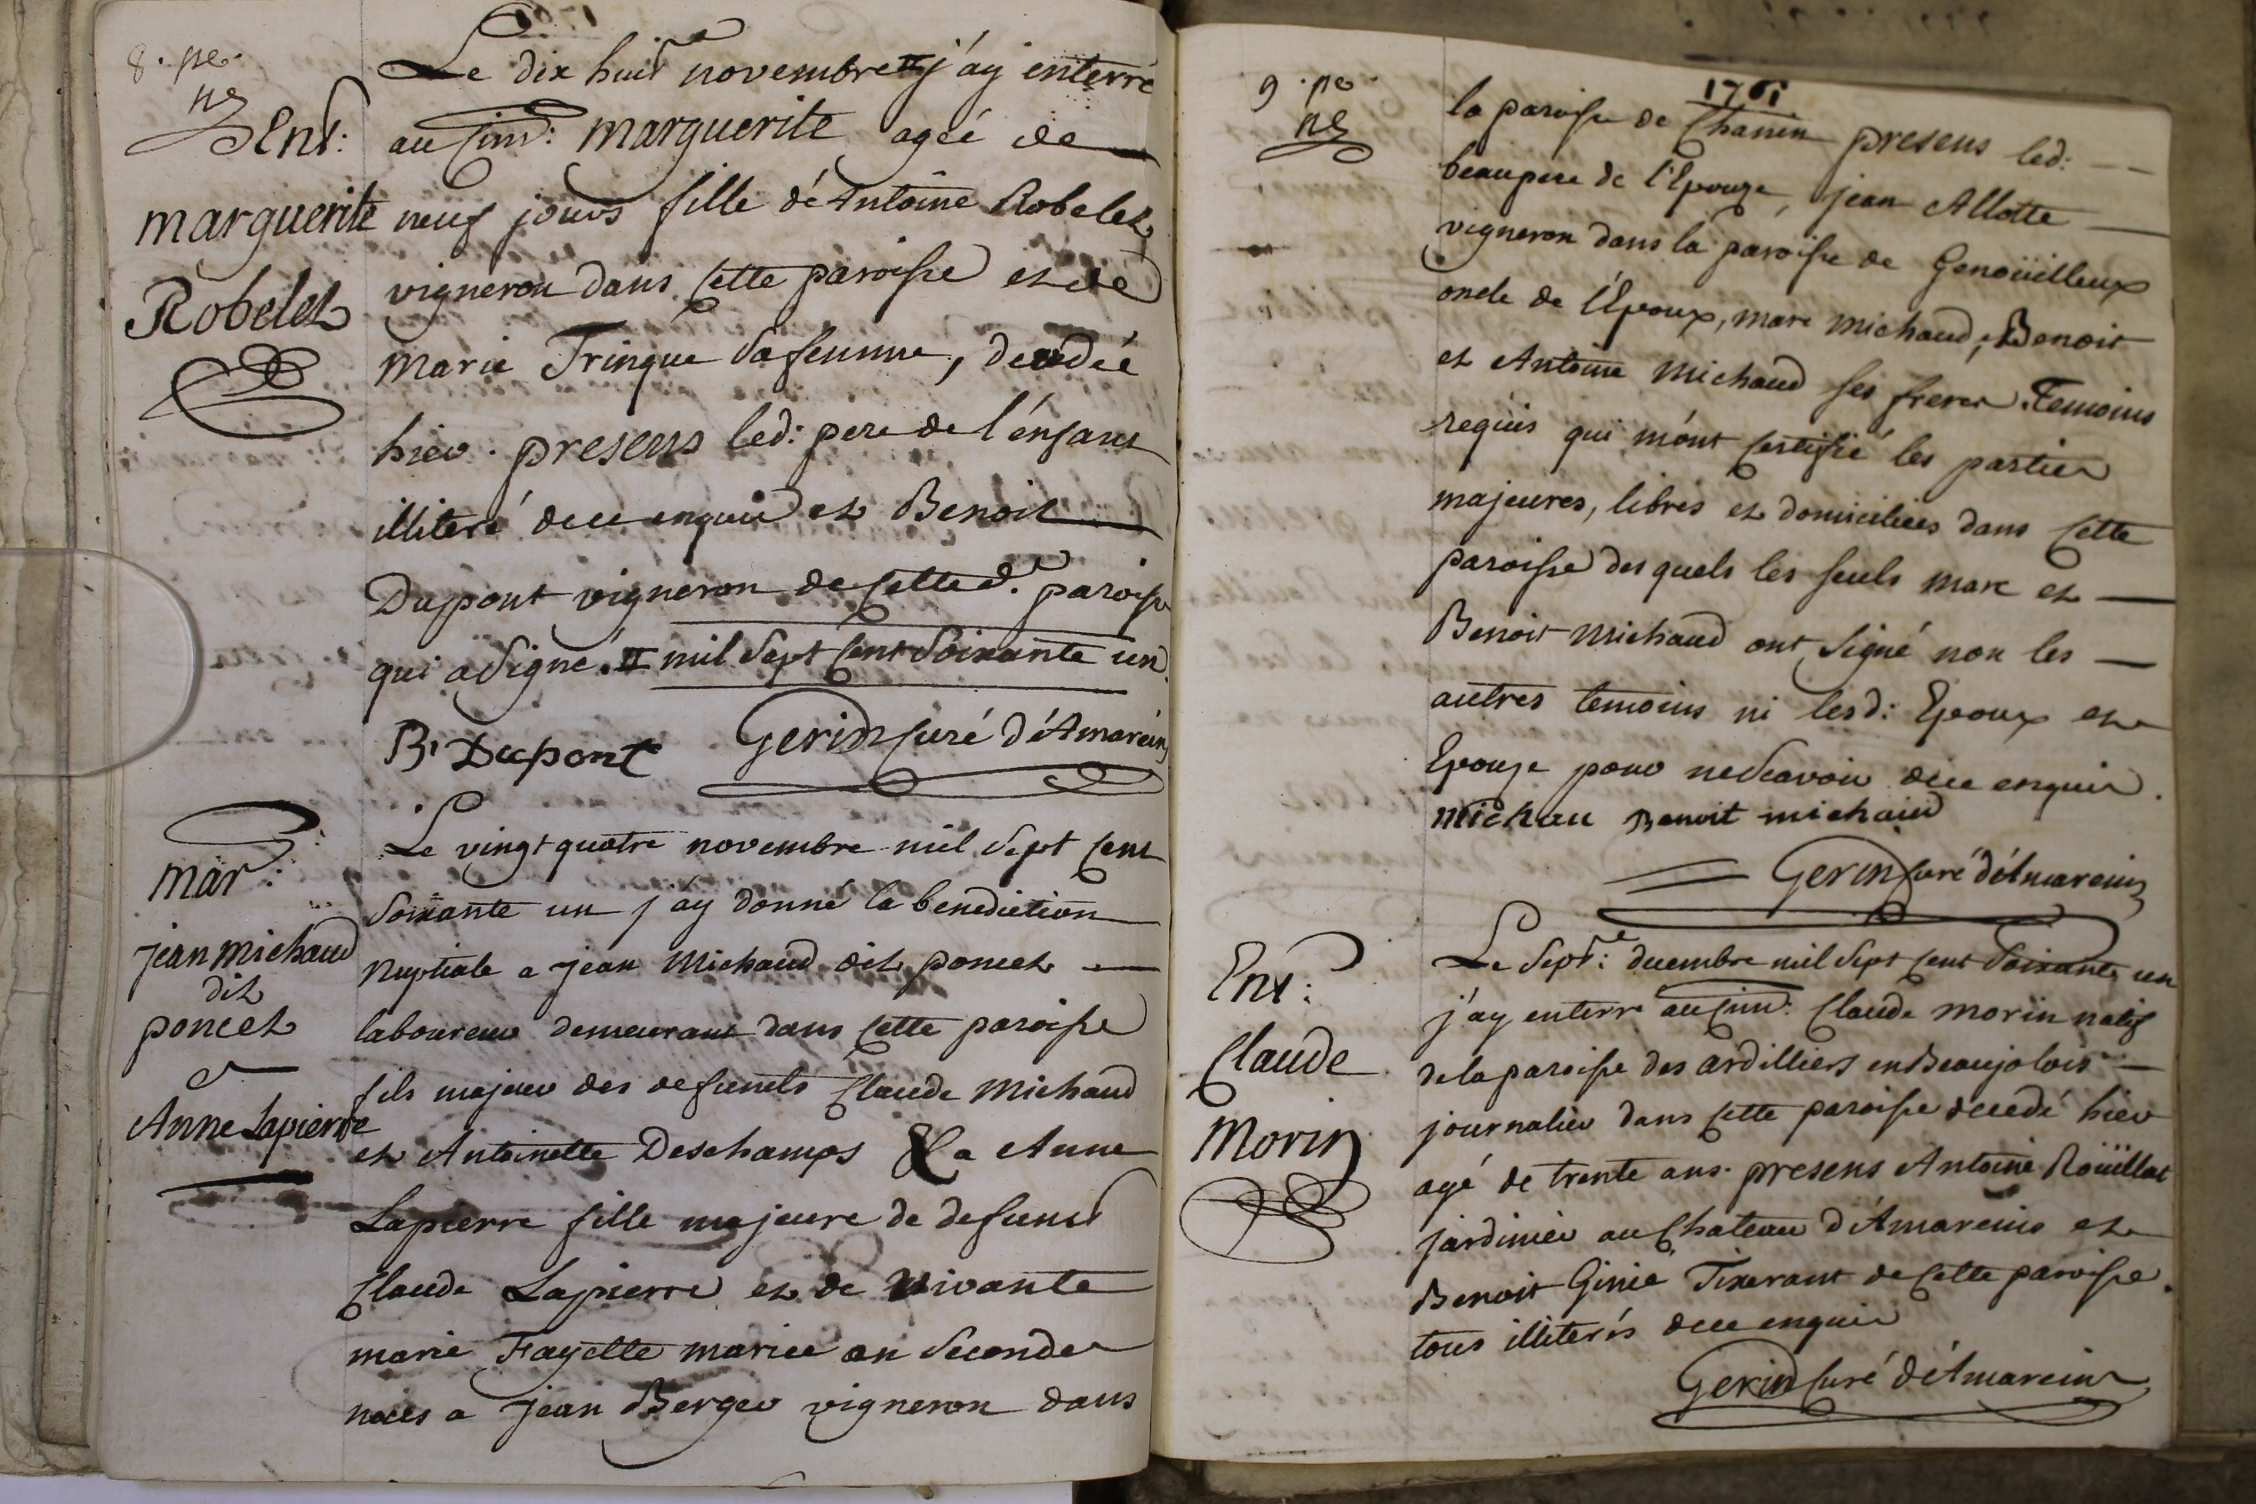 8. pe.
ne
Ent:
marguerite
Robelet
Le dix huit novembre # j'ay enterré
au Cim: marguerite ageé de
neuf jours fille dé Antoine Robelet
vigneron dans cette paroisse et de
Marie Trinque sa femme, decedée
hier. presens led: pere de l'énfant
illiteré de ce enquis et Benoit
Dupont vigneron de cette d. paroisse
qui a signé. # mil sept cent soixante un
B. Dupont Gerin Curé d'Amareins
mar:
jean michaud
dit
poncet
et
Anne Lapierre
Le vingt quatre novembre mil sept cent
soixante un j'ay donné la benediction
nuptiale a jean Michaud dit poncet
laboureur demeurant dans cette paroisse
fils majeur des defunts Claude Michaud
et Antoinette Deschamps & a Anne
Lapierre fille majeure de defunt
Claude Lapierre et de vivante
marie Fayette mariee en secondes
noces a jean Berger vigneron dans
9. pe.
ne
1761
la paroisse de Chanein presens led:
beaupere de l'Epouze, jean Allotte
vigneron dans la paroisse de Genoüilleux
oncle de l'Epoux, marc michaud, Benoit
et Antoine Michaud ses freres. Temoins
requis qui m'ónt certifié les parties
majeures, libres et domiciliees dans cette
paroisse des quels les seuls marc et
Benoit Michaud ont signé non les
autres temoins ni lesd: Epoux et
Epouze pour ne scavoir de ce enquis.
michau Benoit michaud
Gerin Curé d'Amareins
Ent:
Claude
Morin
Le Sept: decembre mil sept cent soixante un
j'ay enterré au Cim: Claude morin natif
de la paroisse des ardilliers en Beaujolois
journalier dans cette paroisse decedé hier
agé de trente ans. presens Antoine Roüillat
jardinier au Chateau d'Amareins et
Benoit Ginié Tixerant de cette paroisse.
tous illiterés de ce enquis
Gerin Curé d'Amareins